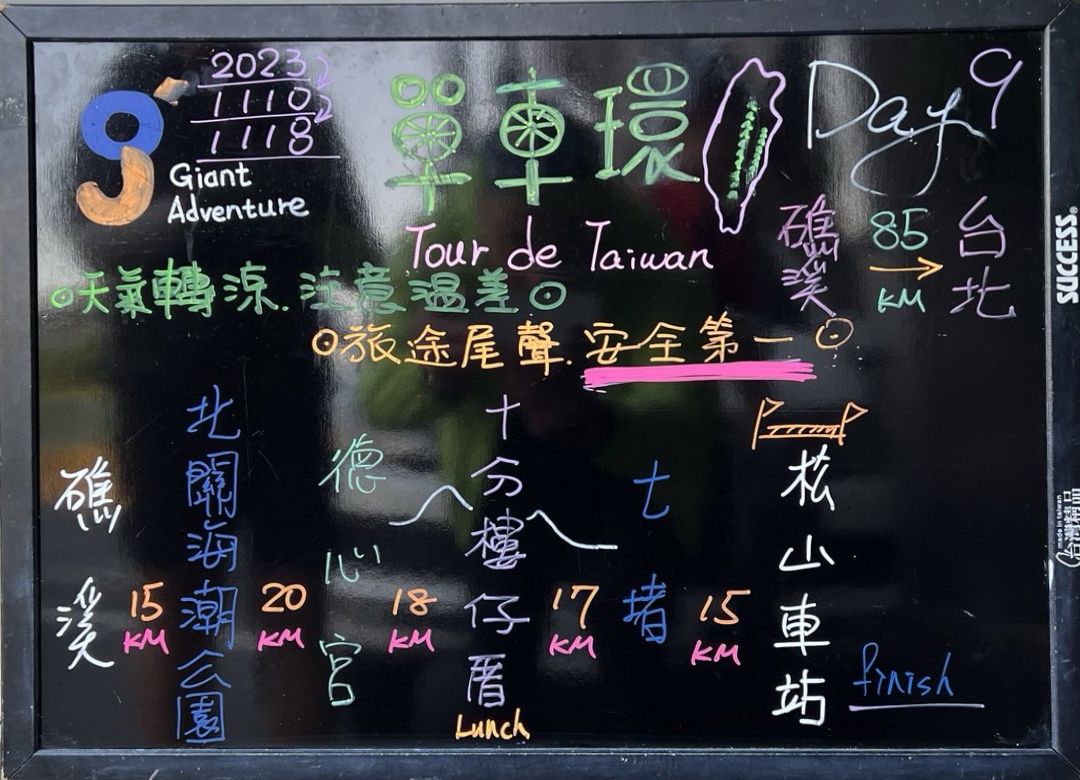 2023
1110
1118
Giant
Adventure
單車環
Day 9
Tour de Taiwan
礁溪 85 KM → 台北
⊙天氣轉涼.注意溫差⊙
⊙旅途尾聲.安全第一⊙
礁溪
15 KM
北關海潮公園
20 KM
德心宮
18 KM
十分樓仔厝
Lunch
17 KM
七堵
15 KM
松山車站
finish
SUCCESS®
made in taiwan
台灣精品